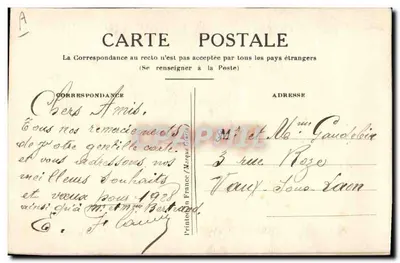 A
CARTE POSTALE
La Correspondance au recto n'est pas acceptée par tous les pays étrangers
(Se renseigner à la Poste)
CORRESPONDANCE
ADRESSE
Chers Amis.
Tous nos remerciements
de votre gentille carte
et vous adressons nos
meilleurs souhaits
et vœux pour 192
ainsi qu'à m. et mme Bertrand
Mr et Mme
3 rue Roze
Vaux-sous-Laon
Printed in France